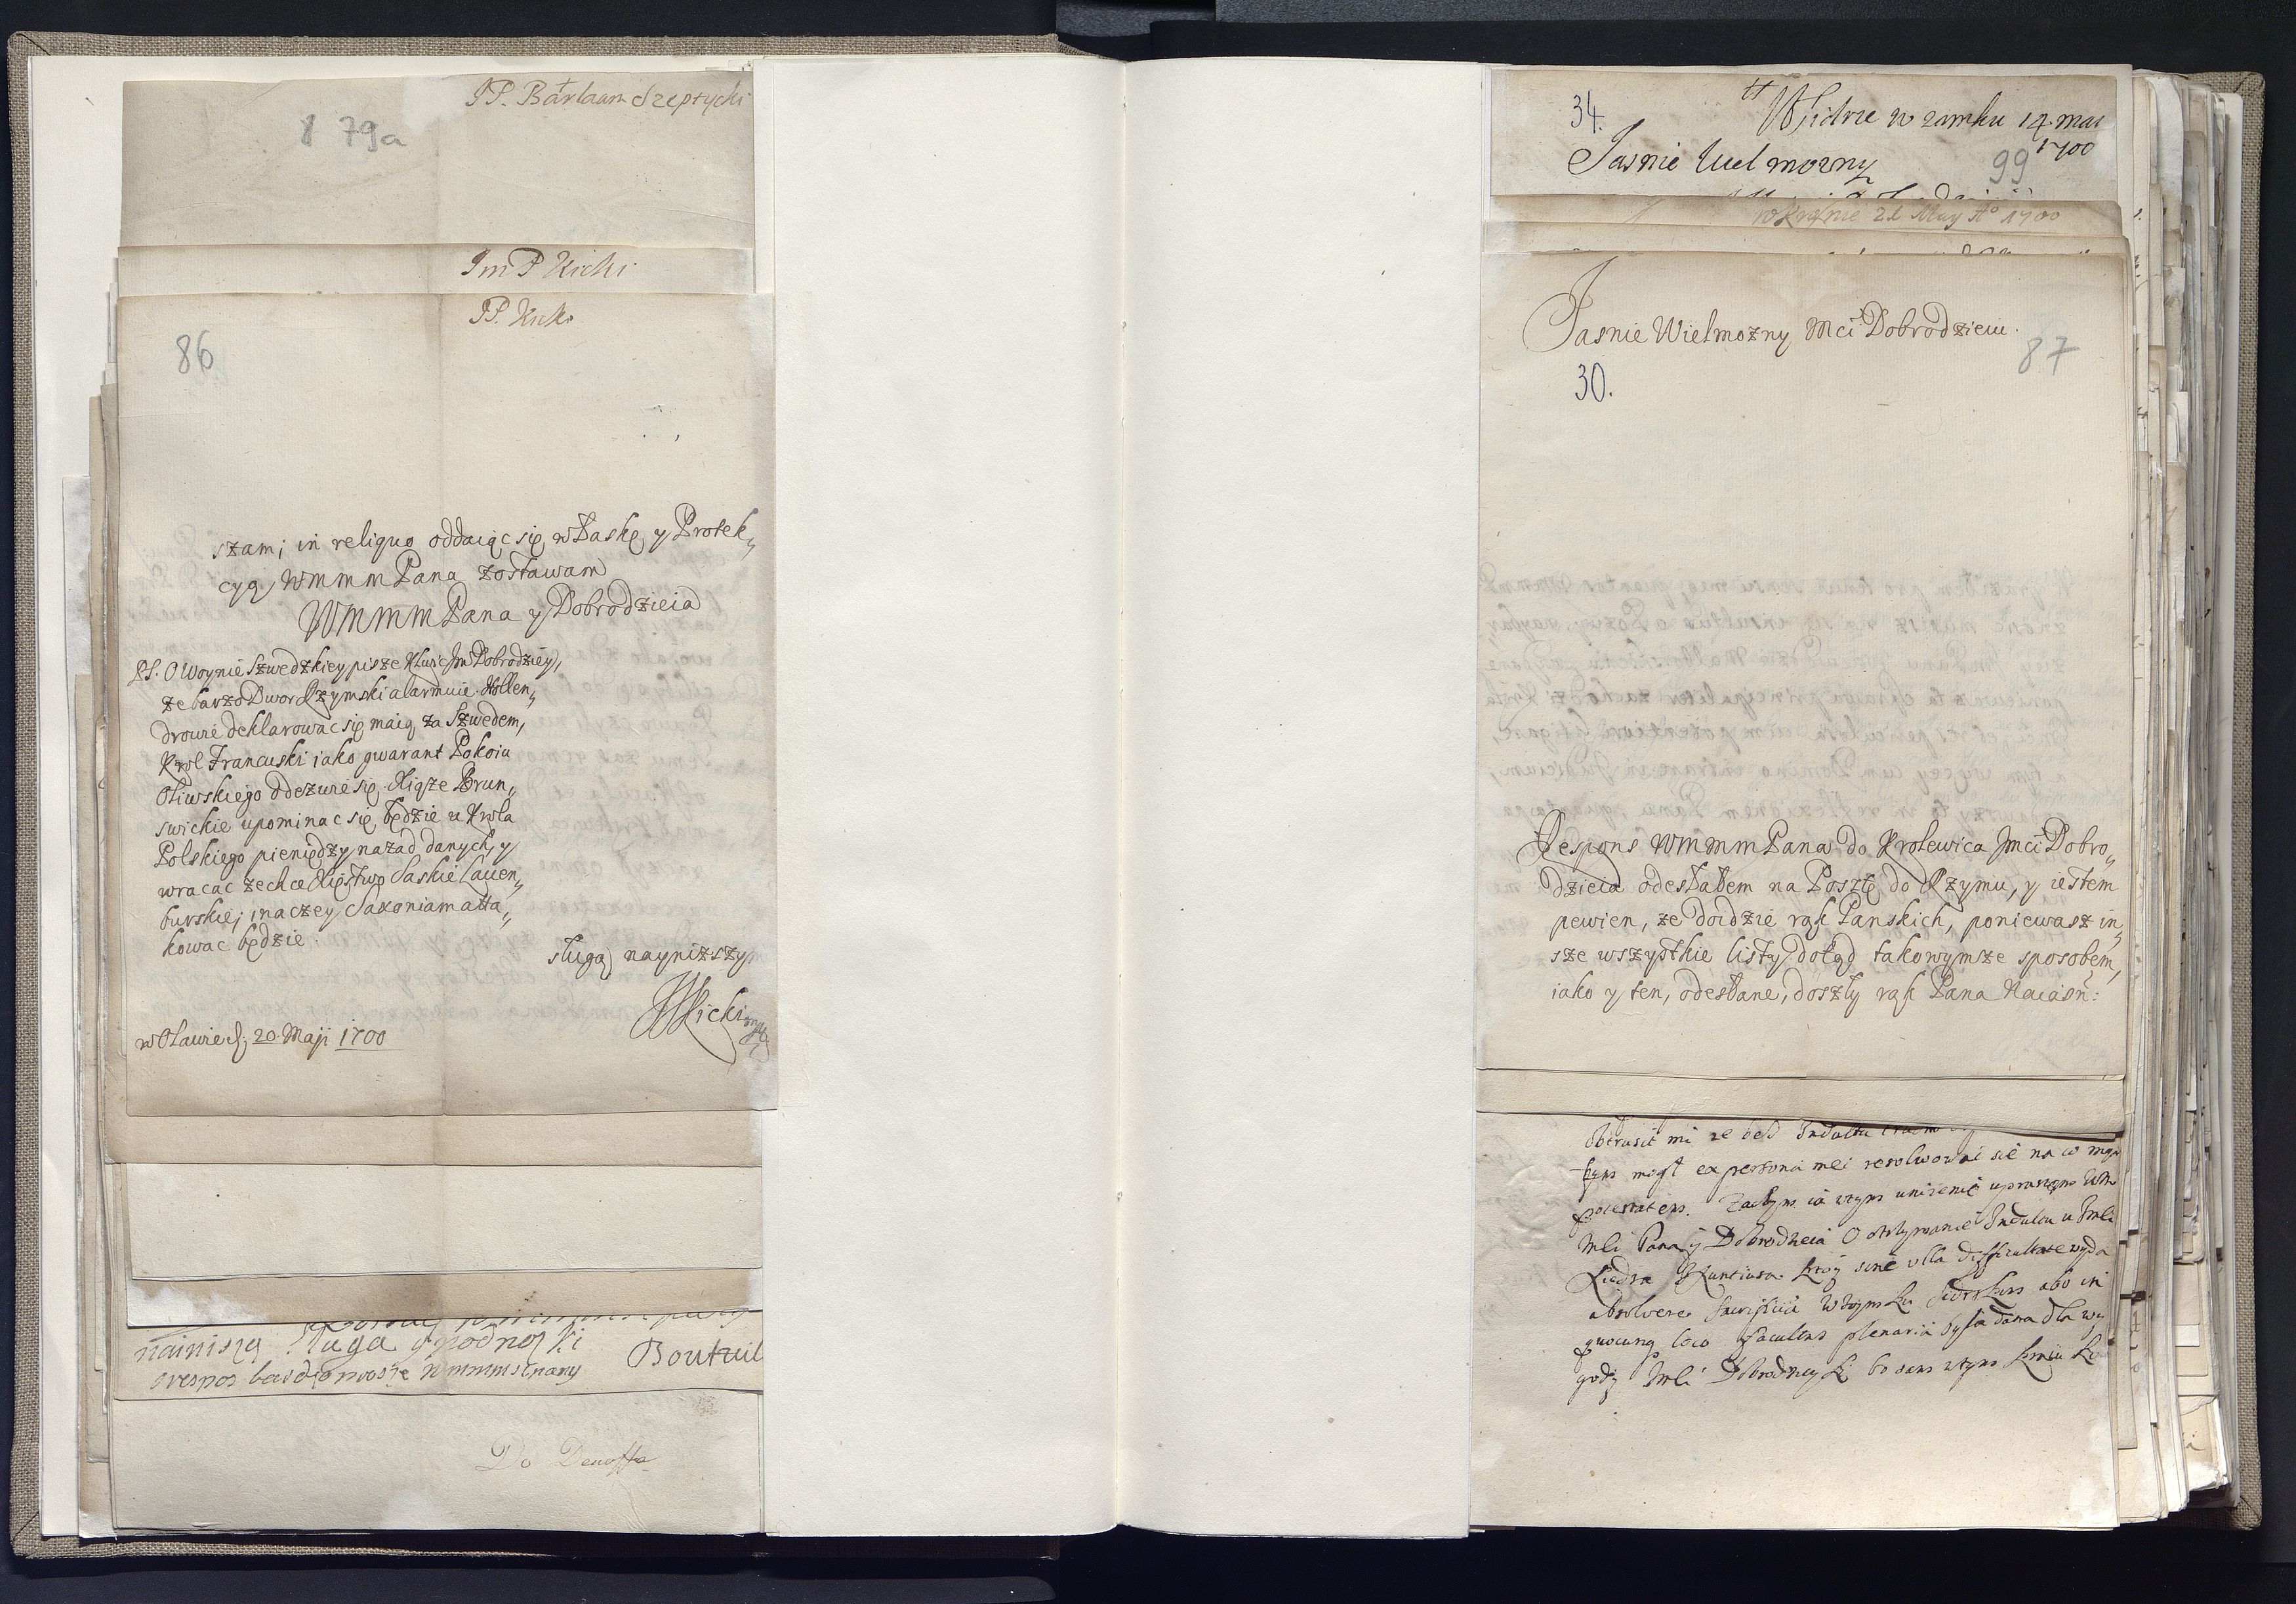 JP. Barlaam Szeptycki
79a
Jm P Kicki
JP. Kicki
86
szam; in reliquo oddaiąc się w Łaskę y Protek„
cyą WMMM Pana zostawam
WMMM Pana y Dobrodzieia
PS. O Woynie Szwedzkiey pisze Xluic Jm Dobrodziey,
że barzo Dwor Rzymski alarmuie. Hollen„
drowie deklarować się maią za Szwedem,
Krol Francuski iako gwarant Pokoiu
Oliwskiego odezwie się. Xiąże Brun„
swickie upominac się będzie u Krola
Polskiego pieniędzy nazad danych, y
wracac zechce Xięstwo Saskie Lauen„
burskie; inaczey Saxoniam atta„
kowac będzie.
sługą naynizszym
Kicki mp
w Oławie d. 20. Maji 1700
nainiszą sługa y podnoszki
Boutuil
o respos bardzo prosze
Do Denoffa
34.
W Sidrze w zamku 14 mai
1700
Jasnie Wiel mozny
99
w Krasnie 21 May Aº 1700
Jasnie Wielmozny Mci Dobrodzieiu.
87
30.
Respons WMMM Pana do Krolewica Jmci Dobro„
dzieia odesłałem na Posztę do Rzymu, y iestem
pewien, ze doidzie rąk Panskich, poniewasz in„
sze wszystkie listy dotąd takowymsze sposobem,
iako y ten, odesłane, doszły rąk Pana Naiasn:
mi ze bes Indultu
tym mogł ex persona mei resolwowai sie na co
potestatem. Zaczym ia wtym unizenie upraszam WM
Mci Pana y Dobrodzieia O otrzymanie Indultu u Jmci
Xiedza Nuntiusa. ktory sine ulla difficultate wyda
absolvere w tym abo in
quocunq loco facultas plenaria była dana dla wy
gody Jmci Dobrodzieyki bo sam wtym